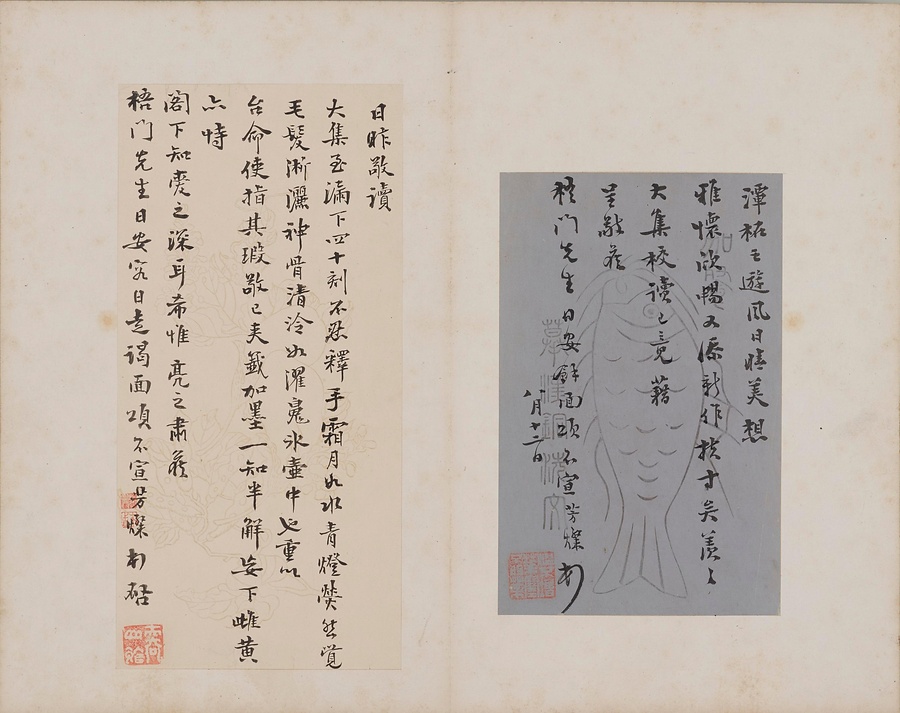 潭柘之遊風日晴美想
雅懷欣暢又添新作於寸矣羨々
大集校讀已竟藉
呈敬候
梧門先生日安餘面頌不宣芳燦
八月十二日
日昨敬讀
大集至漏下四十刻不忍釋手霜月如水青燈熒然覺
毛髮淅灑神骨清冷如濯魂冰壺中也重以
台命使指其瑕敬已夾籤加墨一知半解妄下雌黃
亦恃
閣下知愛之深耳希惟亮之肅候
梧門先生日安容日走謁面頌不宣芳燦